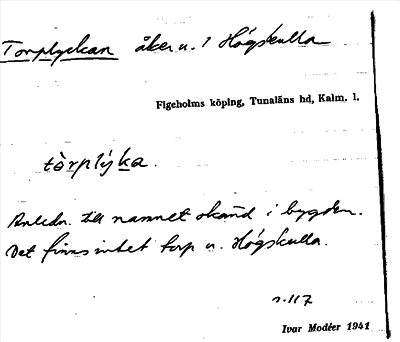 Torplyckan åker u. 1 Högskulla
Figeholms köping, Tunaläns hd, Kalm. l.
tòrplyka.
Anledn. till namnet okänd i bygden.
Det finns intet torp u. Högskulla.
s. 117
Ivar Modéer 1941